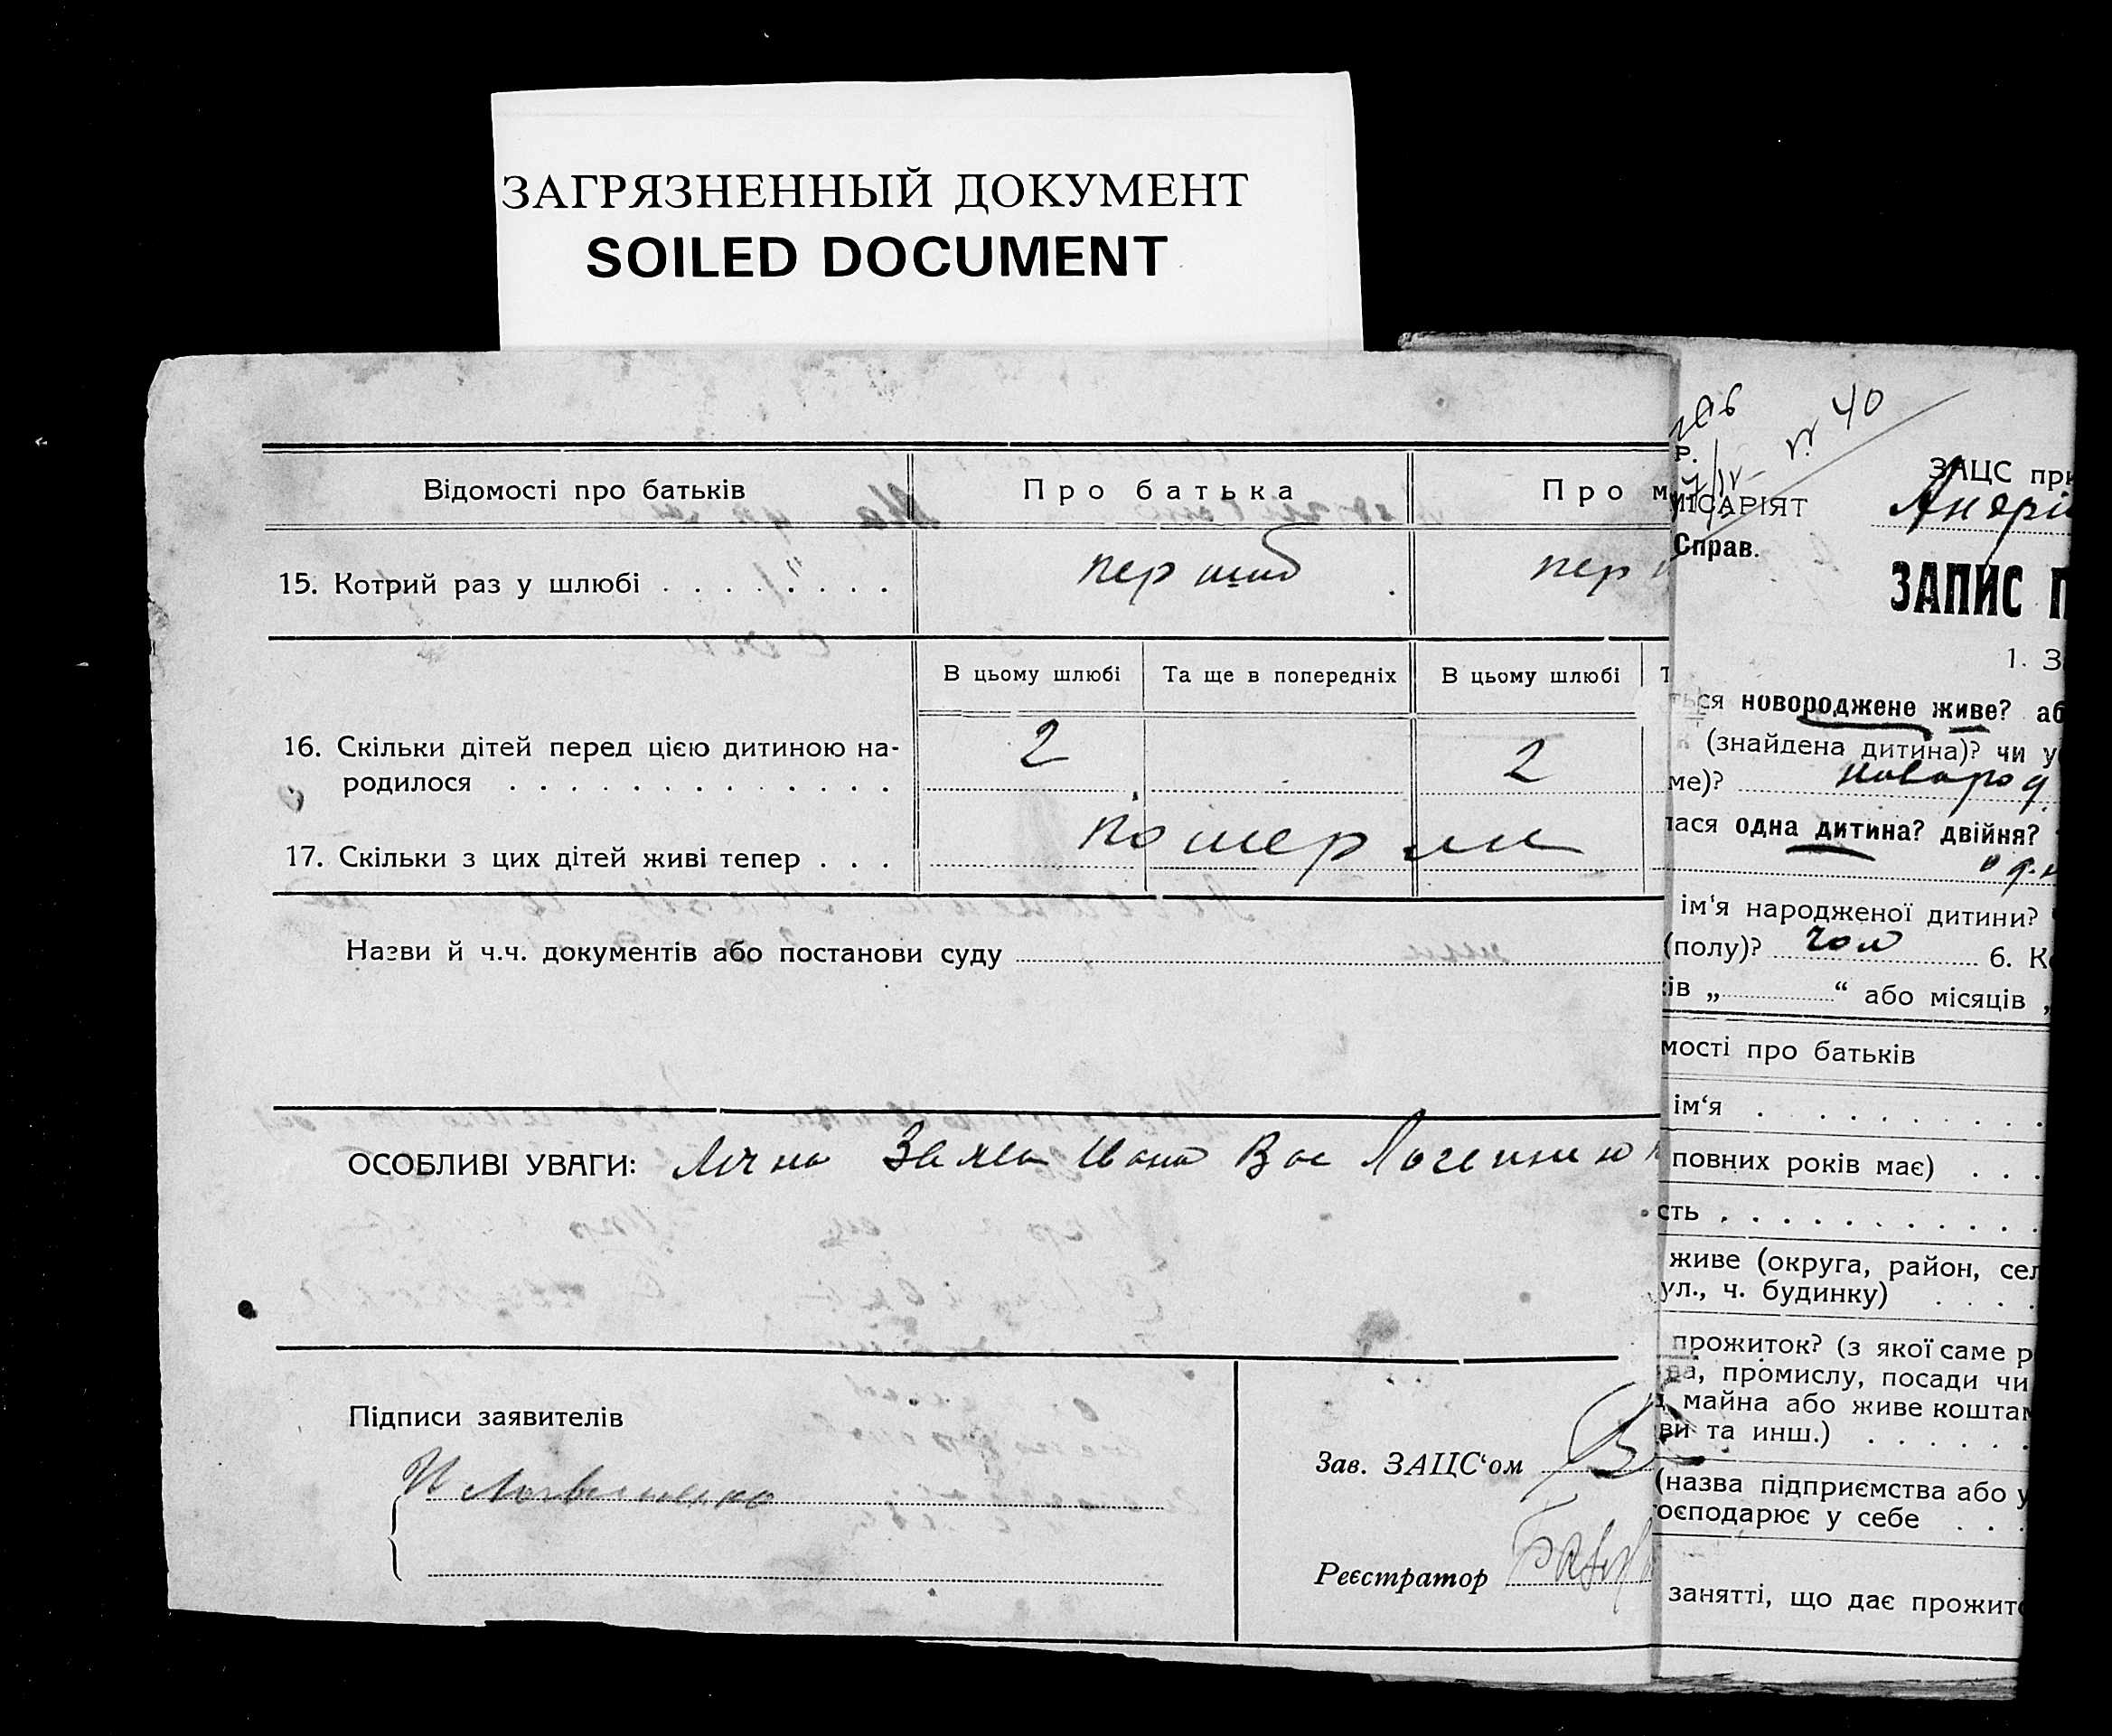 ЗАГРЯЗНЕННЫЙ ДОКУМЕНТ
SOILED DOCUMENT
Відомості про батьків Про батька Про м
15. Котрий раз у шлюбі . . . . . . . . перший пер
В цьому шлюбі Та ще в попередніх В цьому шлюбі Т
16. Скільки дітей перед цією дитиною на-
родилося . . . . . . . . . . . . . . 2 2
17. Скільки з цих дітей живі тепер . . . померли
Назви й ч.ч. документів або постанови суду
ОСОБЛИВІ УВАГИ: Лічна Заява Ивана Вас
Підписи заявителів
Зав. ЗАЦС‘ом
Реєстратор
№ 40
Р.
ЗАЦС при
МІСАРІЯТ Андрі
Справ.
ЗАПИС П
1. З
ться новороджене живе? аб
(знайдена дитина)? чи у
ме)? новарод
лася одна дитина? двійня?
ім‘я народженої дитини?
(полу)? чол 6. К
ів „ “ або місяців „
мості про батьків
ім‘я . . . . . . . . .
повних років має) . . .
сть . . . . . . . . . . .
живе (округа, район, сел
ул., ч. будинку) . . . .
прожиток? (з якої саме р
ва, промислу, посади чи
майна або живе коштам
ви та инш.) . . . . . .
(назва підприємства або у
господарює у себе . . .
занятті, що дає прожито